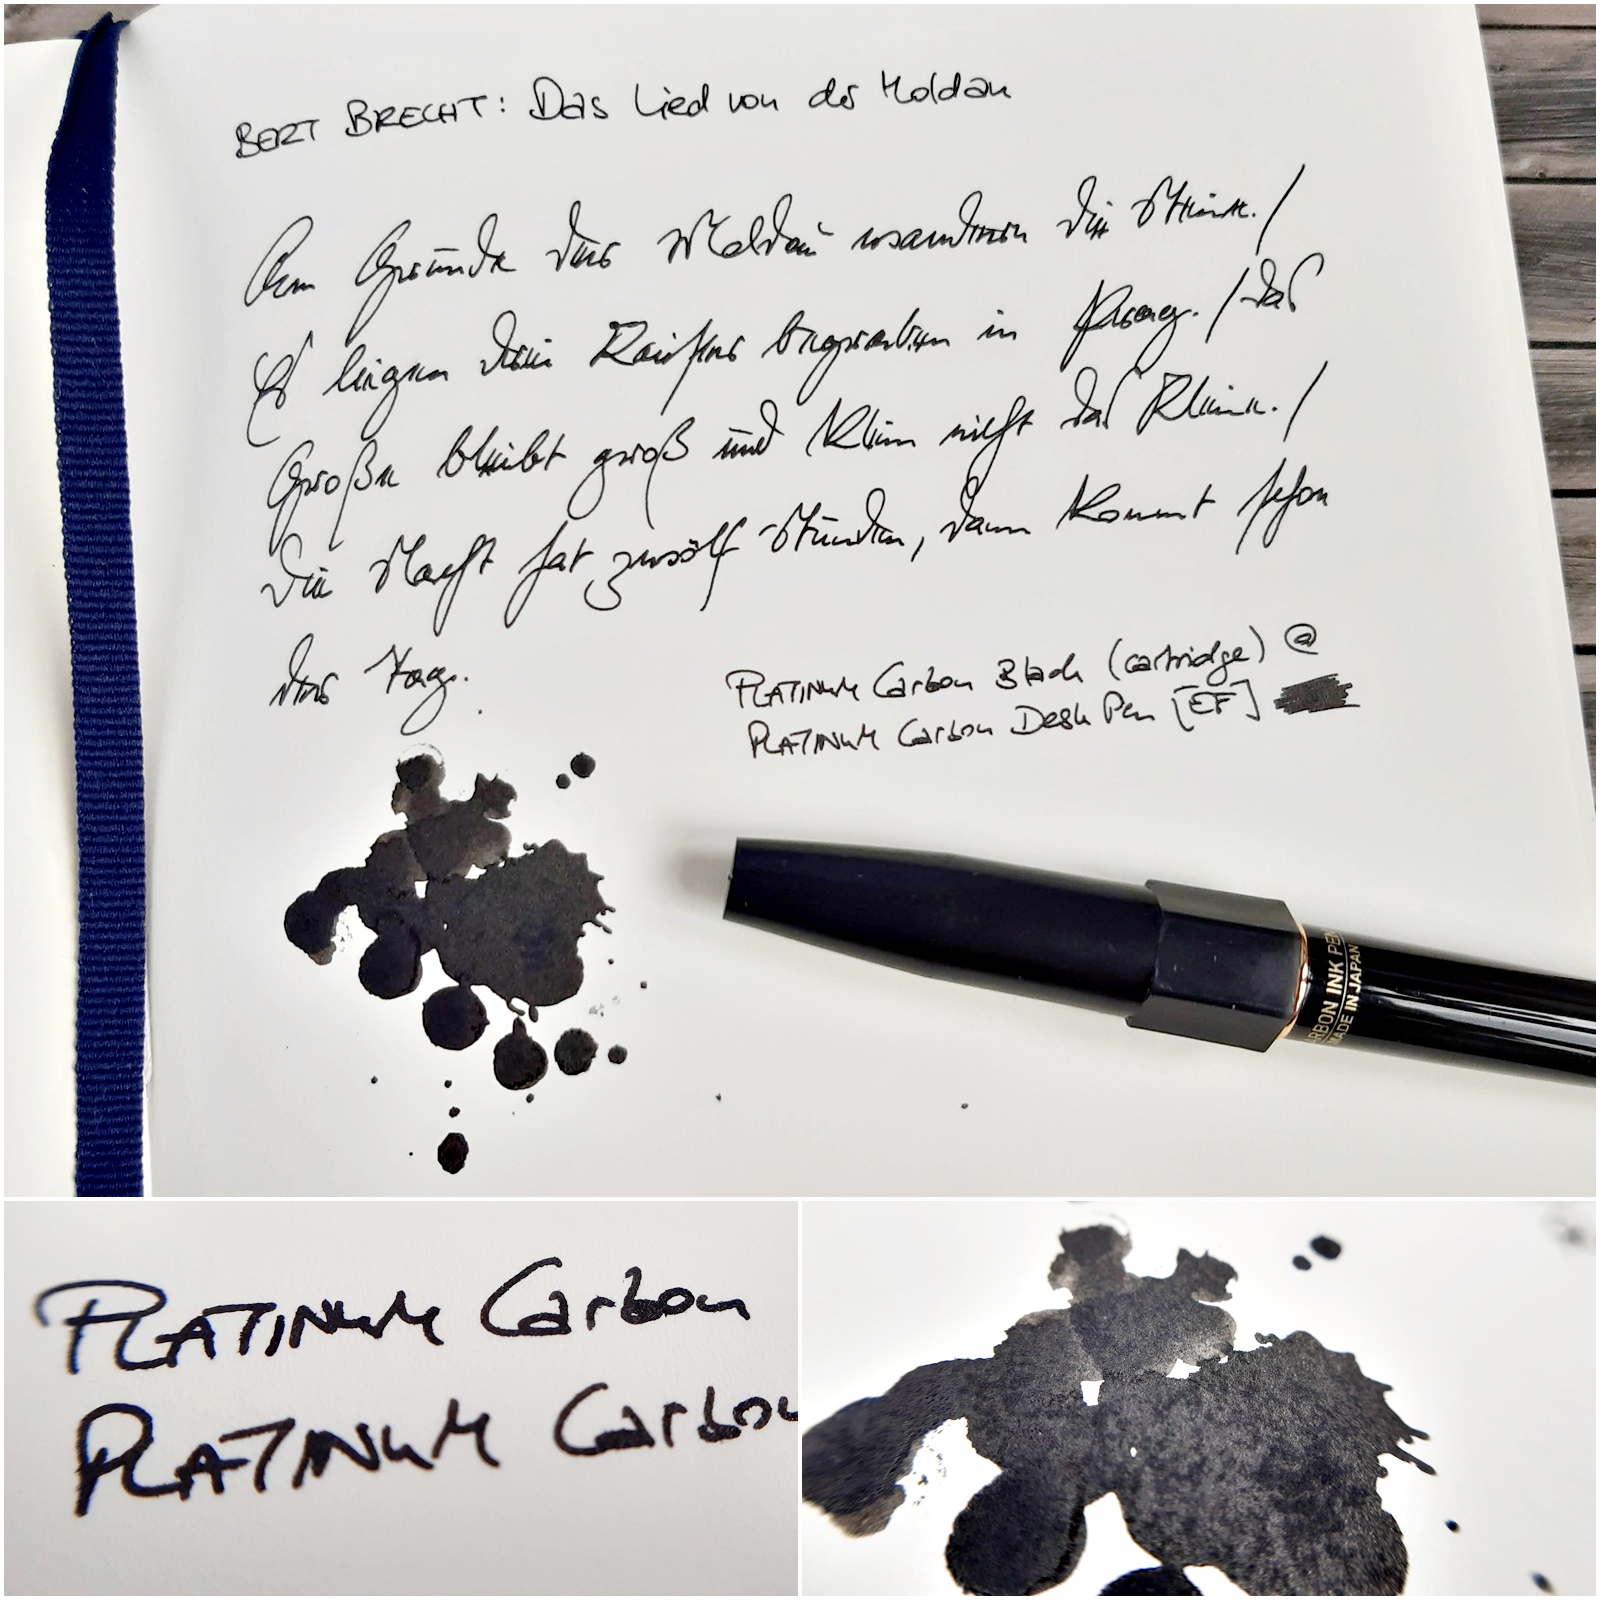 BERT BRECHT: Das Lied von der Moldau
Am Grunde der Moldau wandern die Steine. /
Es liegen drei Kaiser begraben in Prag. / Das
Große bleibt groß und klein nicht das Kleine. /
Die Nacht hat zwölf Stunden, dann kommt schon
der Tag.
PLATINUM Carbon Black (cartridge) @
PLATINUM Carbon Desk Pen [EF]
RBON INK PEN
MADE IN JAPAN
PLATINUM Carbon
PLATINUM Carbon